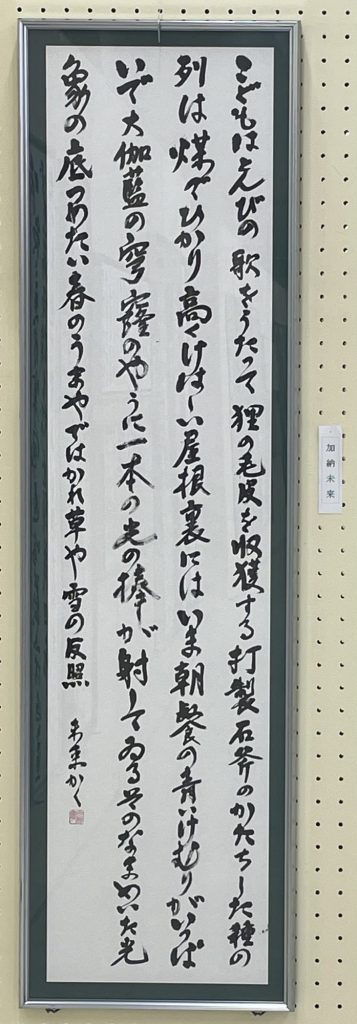 こどもはとんびの歌をうたって狸の毛皮を収獲する打製石斧のかたちした種の
列は煤でひかり高くけはしい屋根裏にはいま朝餐の青いけむりがいっぱ
いで大伽藍の穹窿のやうに一本の光の棒が射してゐるそのなまめいた光
象の底つめたい春のうまやではかれ草や雪の反照
未来かく
加納未来